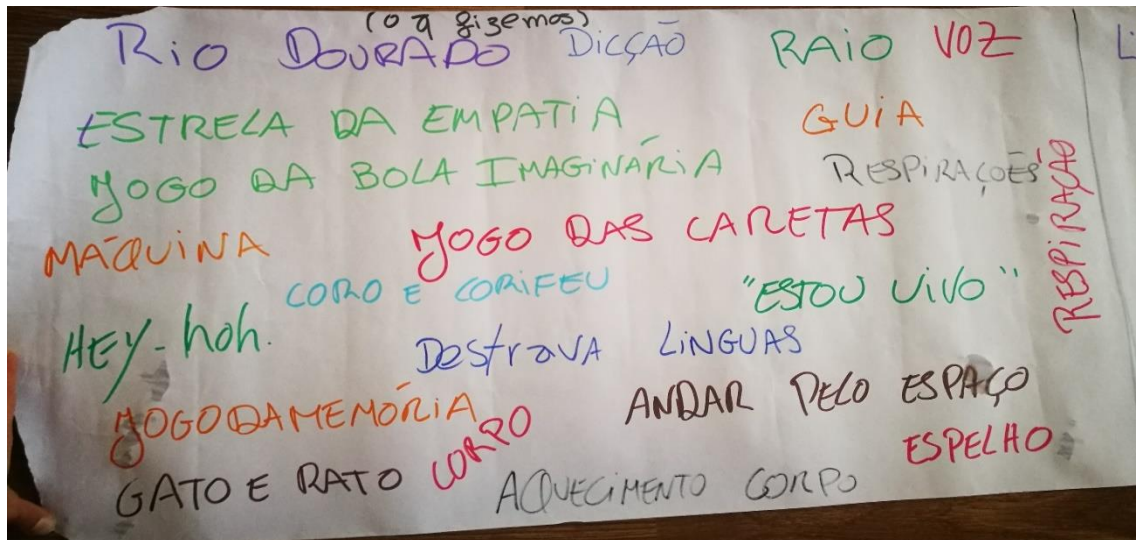 (o q fizemos)
RIO DOURADO DICÇÃO RAIO VOZ
ESTRELA DA EMPATIA GUIA
JOGO DA BOLA IMAGINÁRIA RESPIRAÇÕES
RESPIRAÇÃO
MÁQUINA JOGO DAS CARETAS
CORO E CORIFEU "ESTOU VIVO"
HEY-hoh. DestravA LINGUAS
JOGO DA MEMÓRIA ANDAR PELO ESPAÇO
CORPO ESPELHO
GATO E RATO AQUECIMENTO CORPO